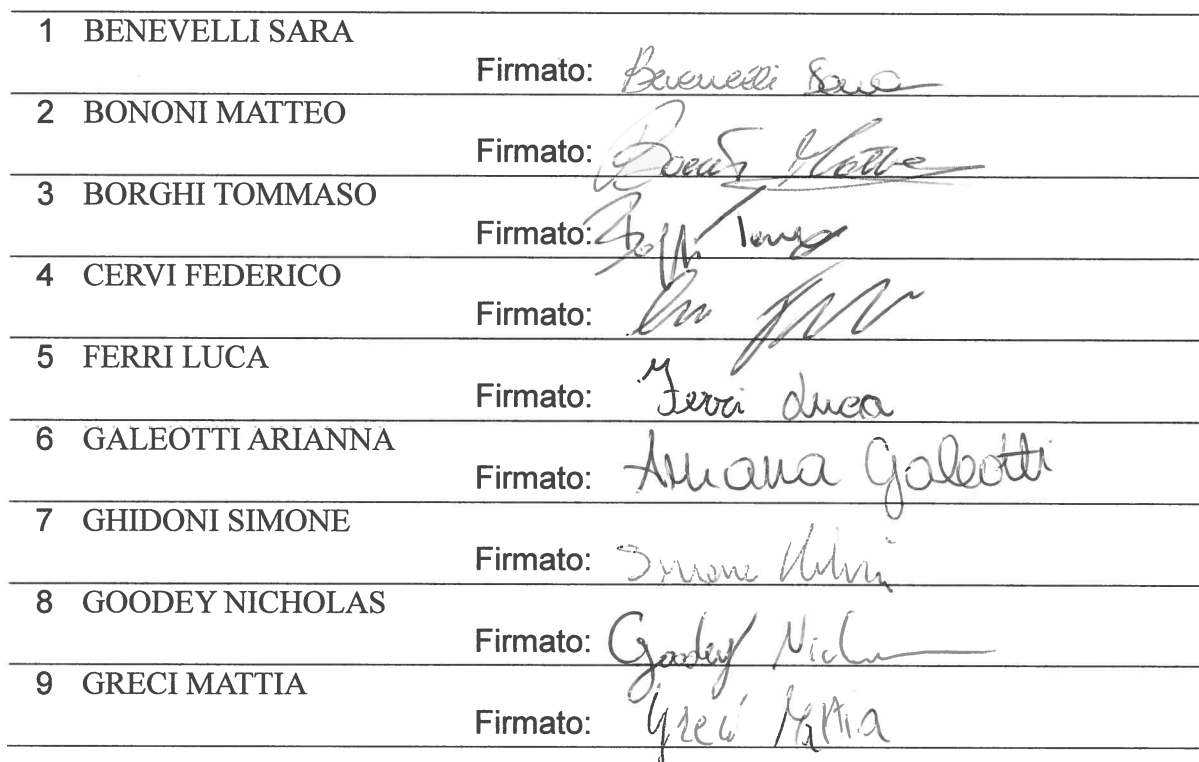 1 BENEVELLI SARA
Firmato: Benevelli Sara
2 BONONI MATTEO
Firmato: Matteo
3 BORGHI TOMMASO
Firmato:
4 CERVI FEDERICO
Firmato:
5 FERRI LUCA
Firmato: Ferri Luca
6 GALEOTTI ARIANNA
Firmato: Arianna Galeotti
7 GHIDONI SIMONE
Firmato: Simone
8 GOODEY NICHOLAS
Firmato: Goodey
9 GRECI MATTIA
Firmato: Greci Mattia